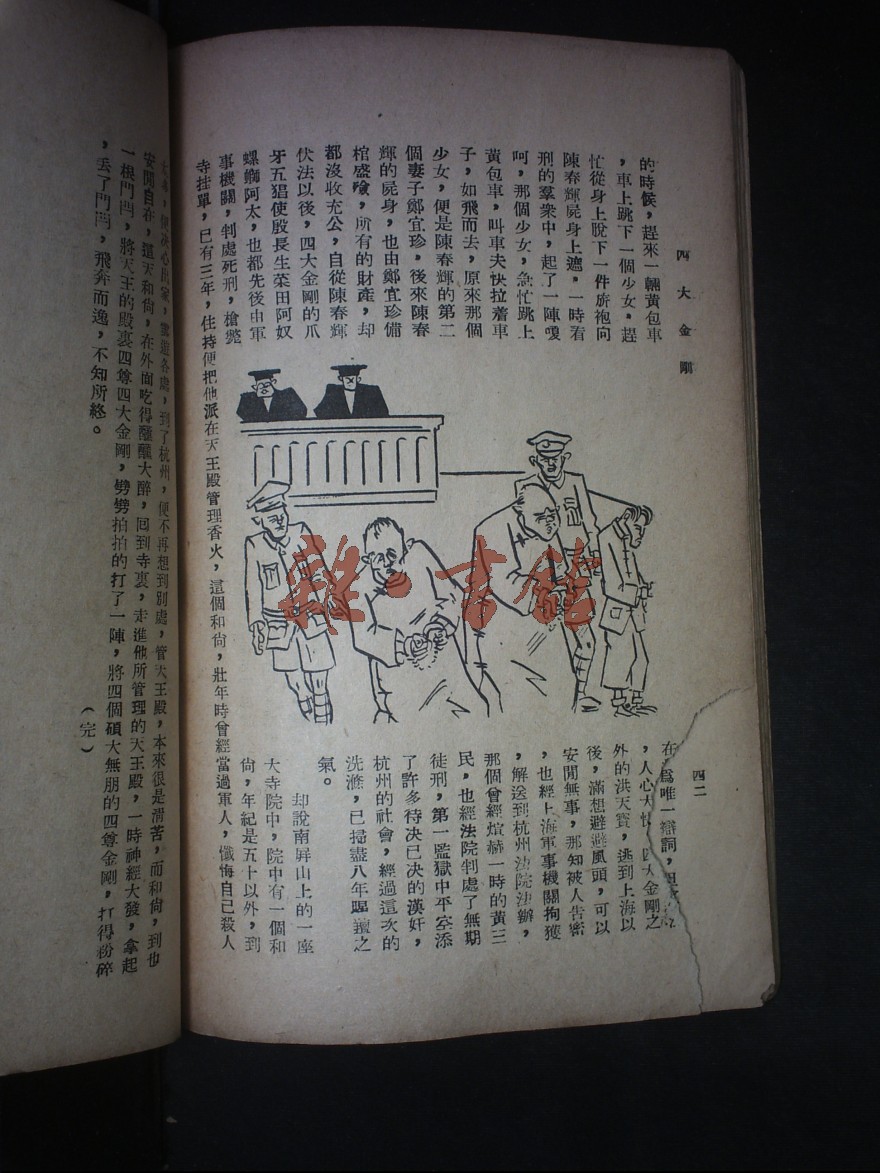 四大金剛
四二
的時候，趕來一輛黃包車
，車上跳下一個少女。趕
忙從身上脫下一件旂袍向
陳春輝屍身上遮，一時看
刑的羣衆中，起了一陣嗄
呵，那個少女，急忙跳上
黃包車，叫車夫快拉着車
子，如飛而去，原來那個
少女，便是陳春輝的第二
個妻子鄭宜珍，後來陳春
輝的屍身，也由鄭宜珍備
棺盛殮，所有的財產，却
都沒收充公，自從陳春輝
伏法以後，四大金剛的爪
牙五猖使殷長生菜田阿奴
螺螄阿太，也都先後由軍
事機關，判處死刑，槍斃
在 爲唯一辯詞，
，人心大 大金剛之
外的洪天寶，逃到上海以
後，滿想避避風頭，可以
安閒無事，那知被人告密
，也經上海軍事機關拘獲
，解送到杭州法院法辦，
那個曾經煊赫一時的黃三
民，也經法院判處了無期
徒刑，第一監獄中平空添
了許多待决已决的漢奸，
杭州的社會，經過這次的
洗滌，已掃盡八年腥羶之
氣。
却說南屏山上的一座
大寺院中，院中有一個和
尙，年紀是五十以外，到
寺挂單，已有三年，住持便把他派在天王殿管理香火，這個和尙，壯年時曾經當過軍人，懺悔自己殺人
，便决心出家，雲遊各處，到了杭州，便不再想到別處，管天王殿，本來很是淸苦，而和尙，到也
安閒自在，這天和尙，在外面吃得醺醺大醉，回到寺裏，走進他所管理的天王殿，一時神經大發，拿起
一根門閂，將天王的殿裏四尊四大金剛，劈劈拍拍的打了一陣，將四個碩大無朋的四尊金剛，打得粉碎
，丢了門閂，飛奔而逸，不知所終。
（完）
雜·書館